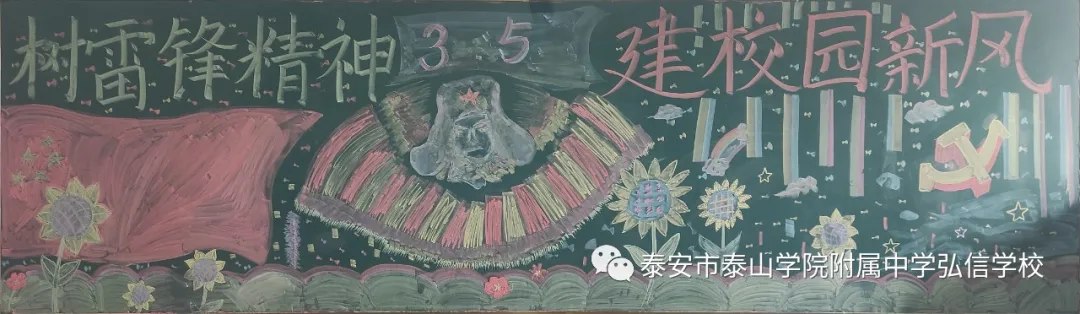 树雷锋精神 3 5 建校园新风
泰安市泰山学院附属中学弘信学校